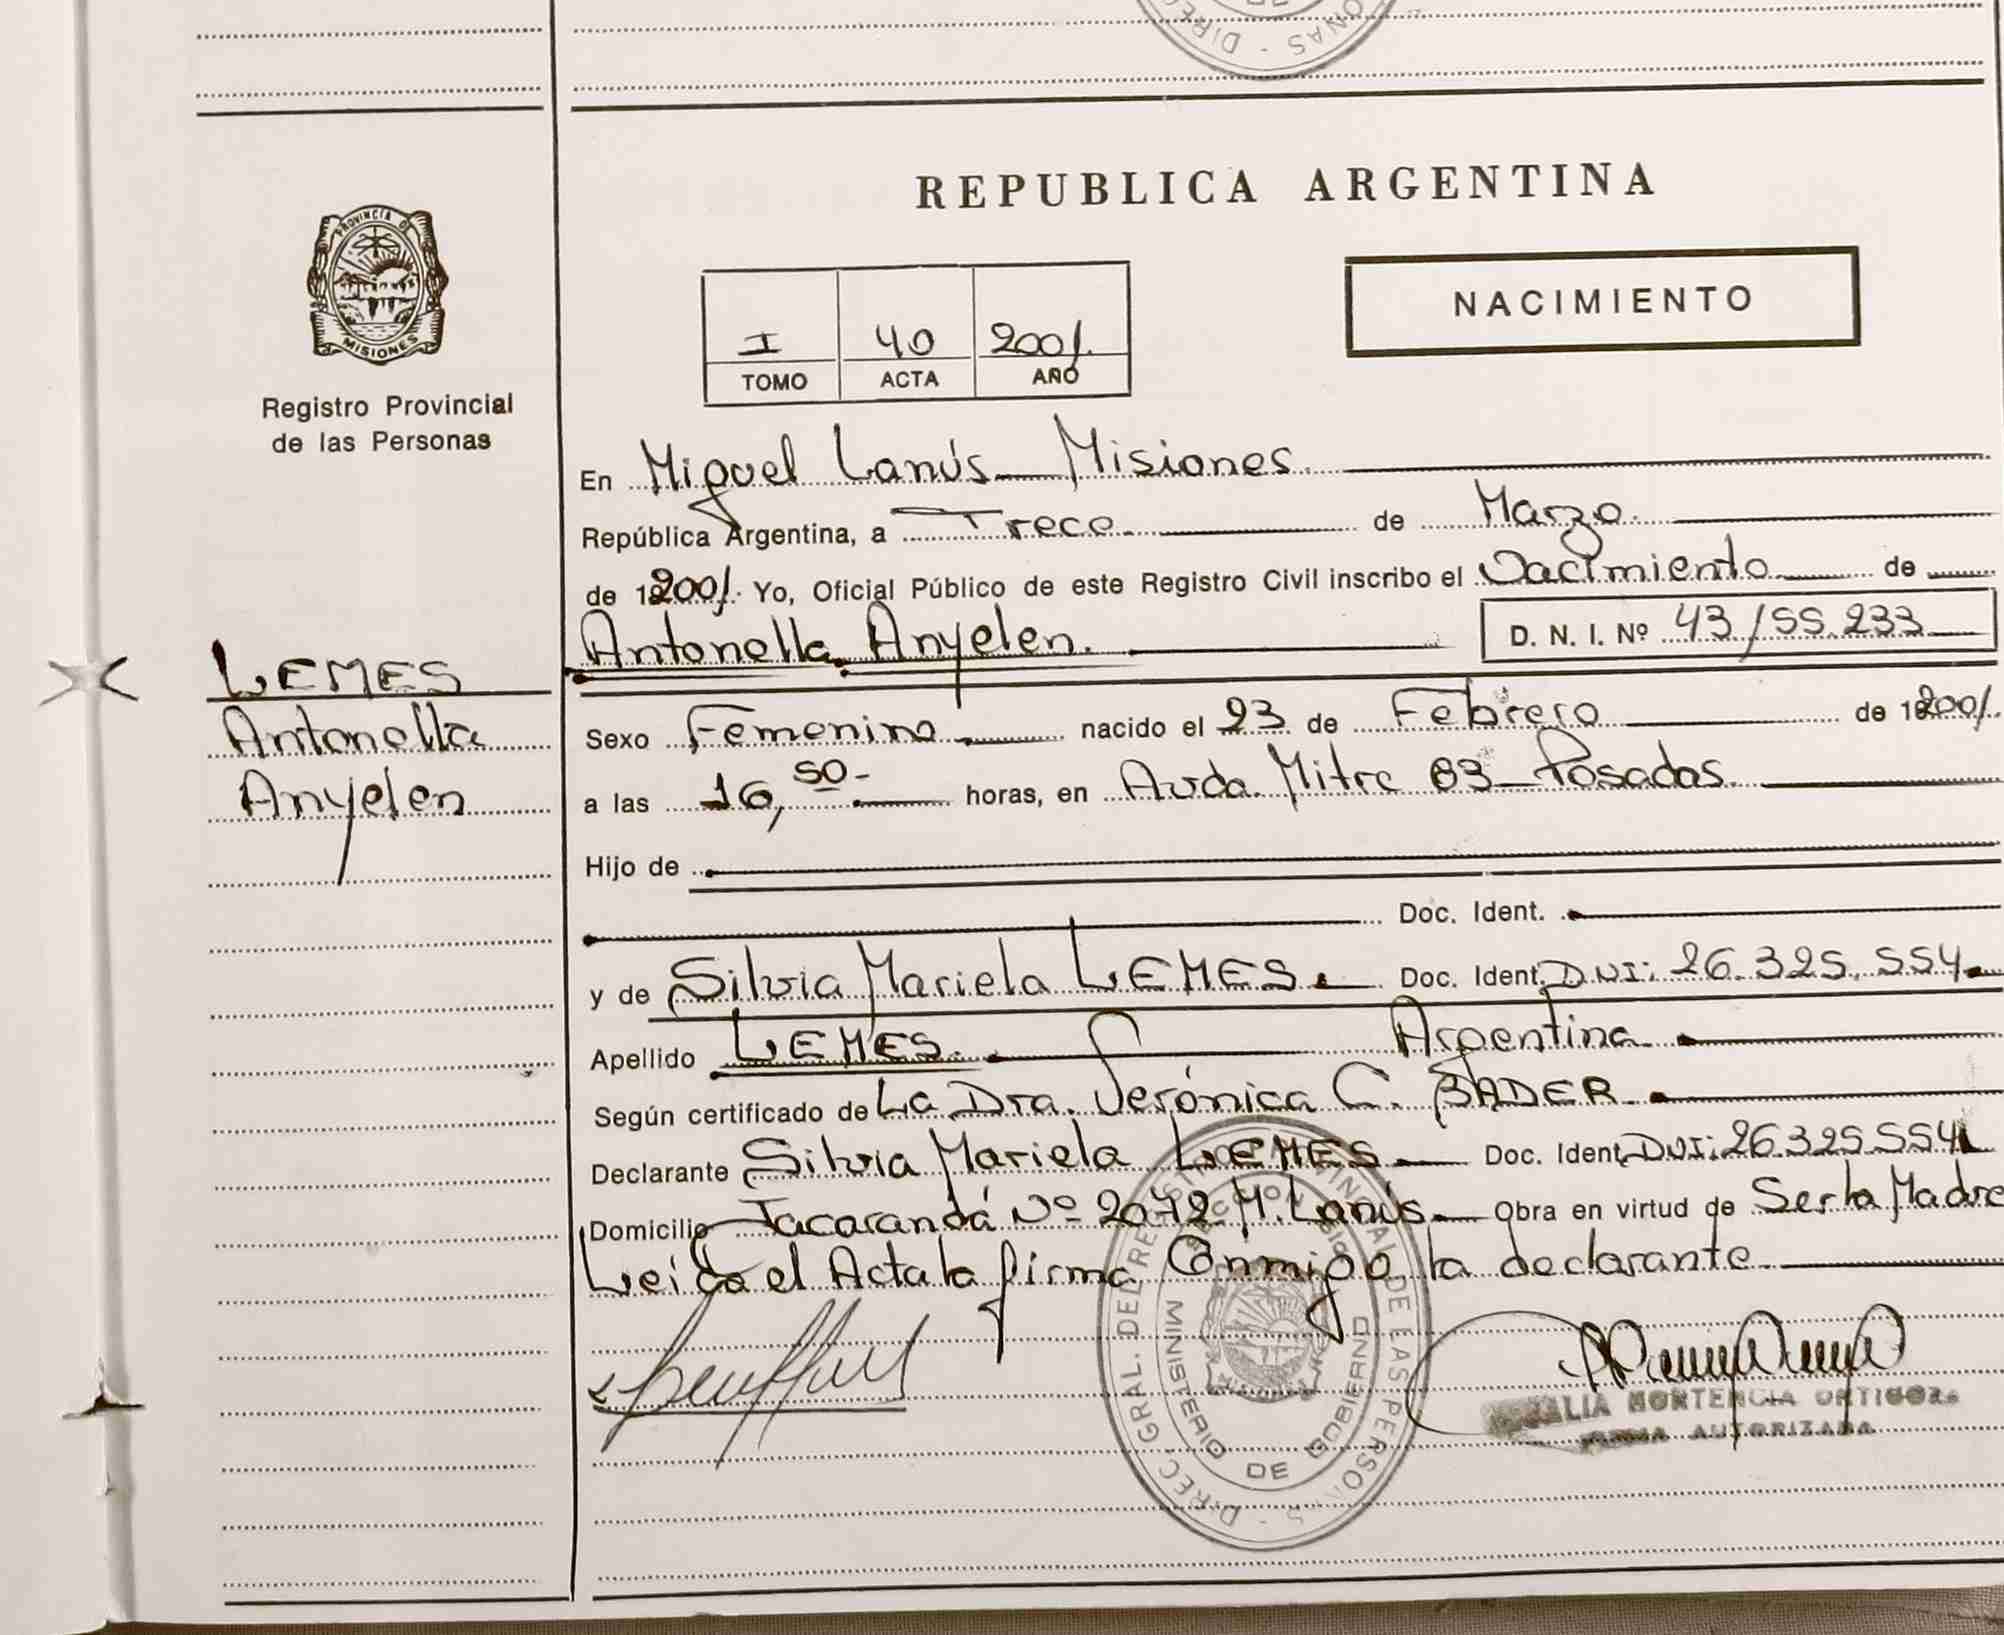 REPUBLICA ARGENTINA
NACIMIENTO
PROVINCIA DE
MISIONES
Registro Provincial
de las Personas
I 40 2001.
TOMO ACTA AÑO
En Miguel Lanús Misiones.
República Argentina, a Trece de Marzo.
de 12001. Yo, Oficial Público de este Registro Civil inscribo el Nacimiento de
Antonella Anyelen. D. N. I. Nº 43155.233
LEMES
Antonella
Anyelen
Sexo Femenino nacido el 23 de Febrero de 12001.
a las 16,50- horas, en Avda. Mitre 83 Posadas.
Hijo de
Doc. Ident.
y de Silvia Mariela LEMES. Doc. Ident. DNI: 26.325.554
Apellido LEMES. Argentina
Según certificado de La Dra. Verónica C. BADER
Declarante Silvia Mariela LEMES Doc. Ident. DNI: 26.325.554
Domicilio Jacarandá Nº 2072 M. Lanús Obra en virtud de Ser la Madre
Leída el Acta la firma Conmigo la declarante
DIREC. GRAL. DEL REGISTRO PROVINCIAL DE LAS PERSONAS
MINISTERIO DE GOBIERNO
HORTENCIA ORTIGOZA
FIRMA AUTORIZADA